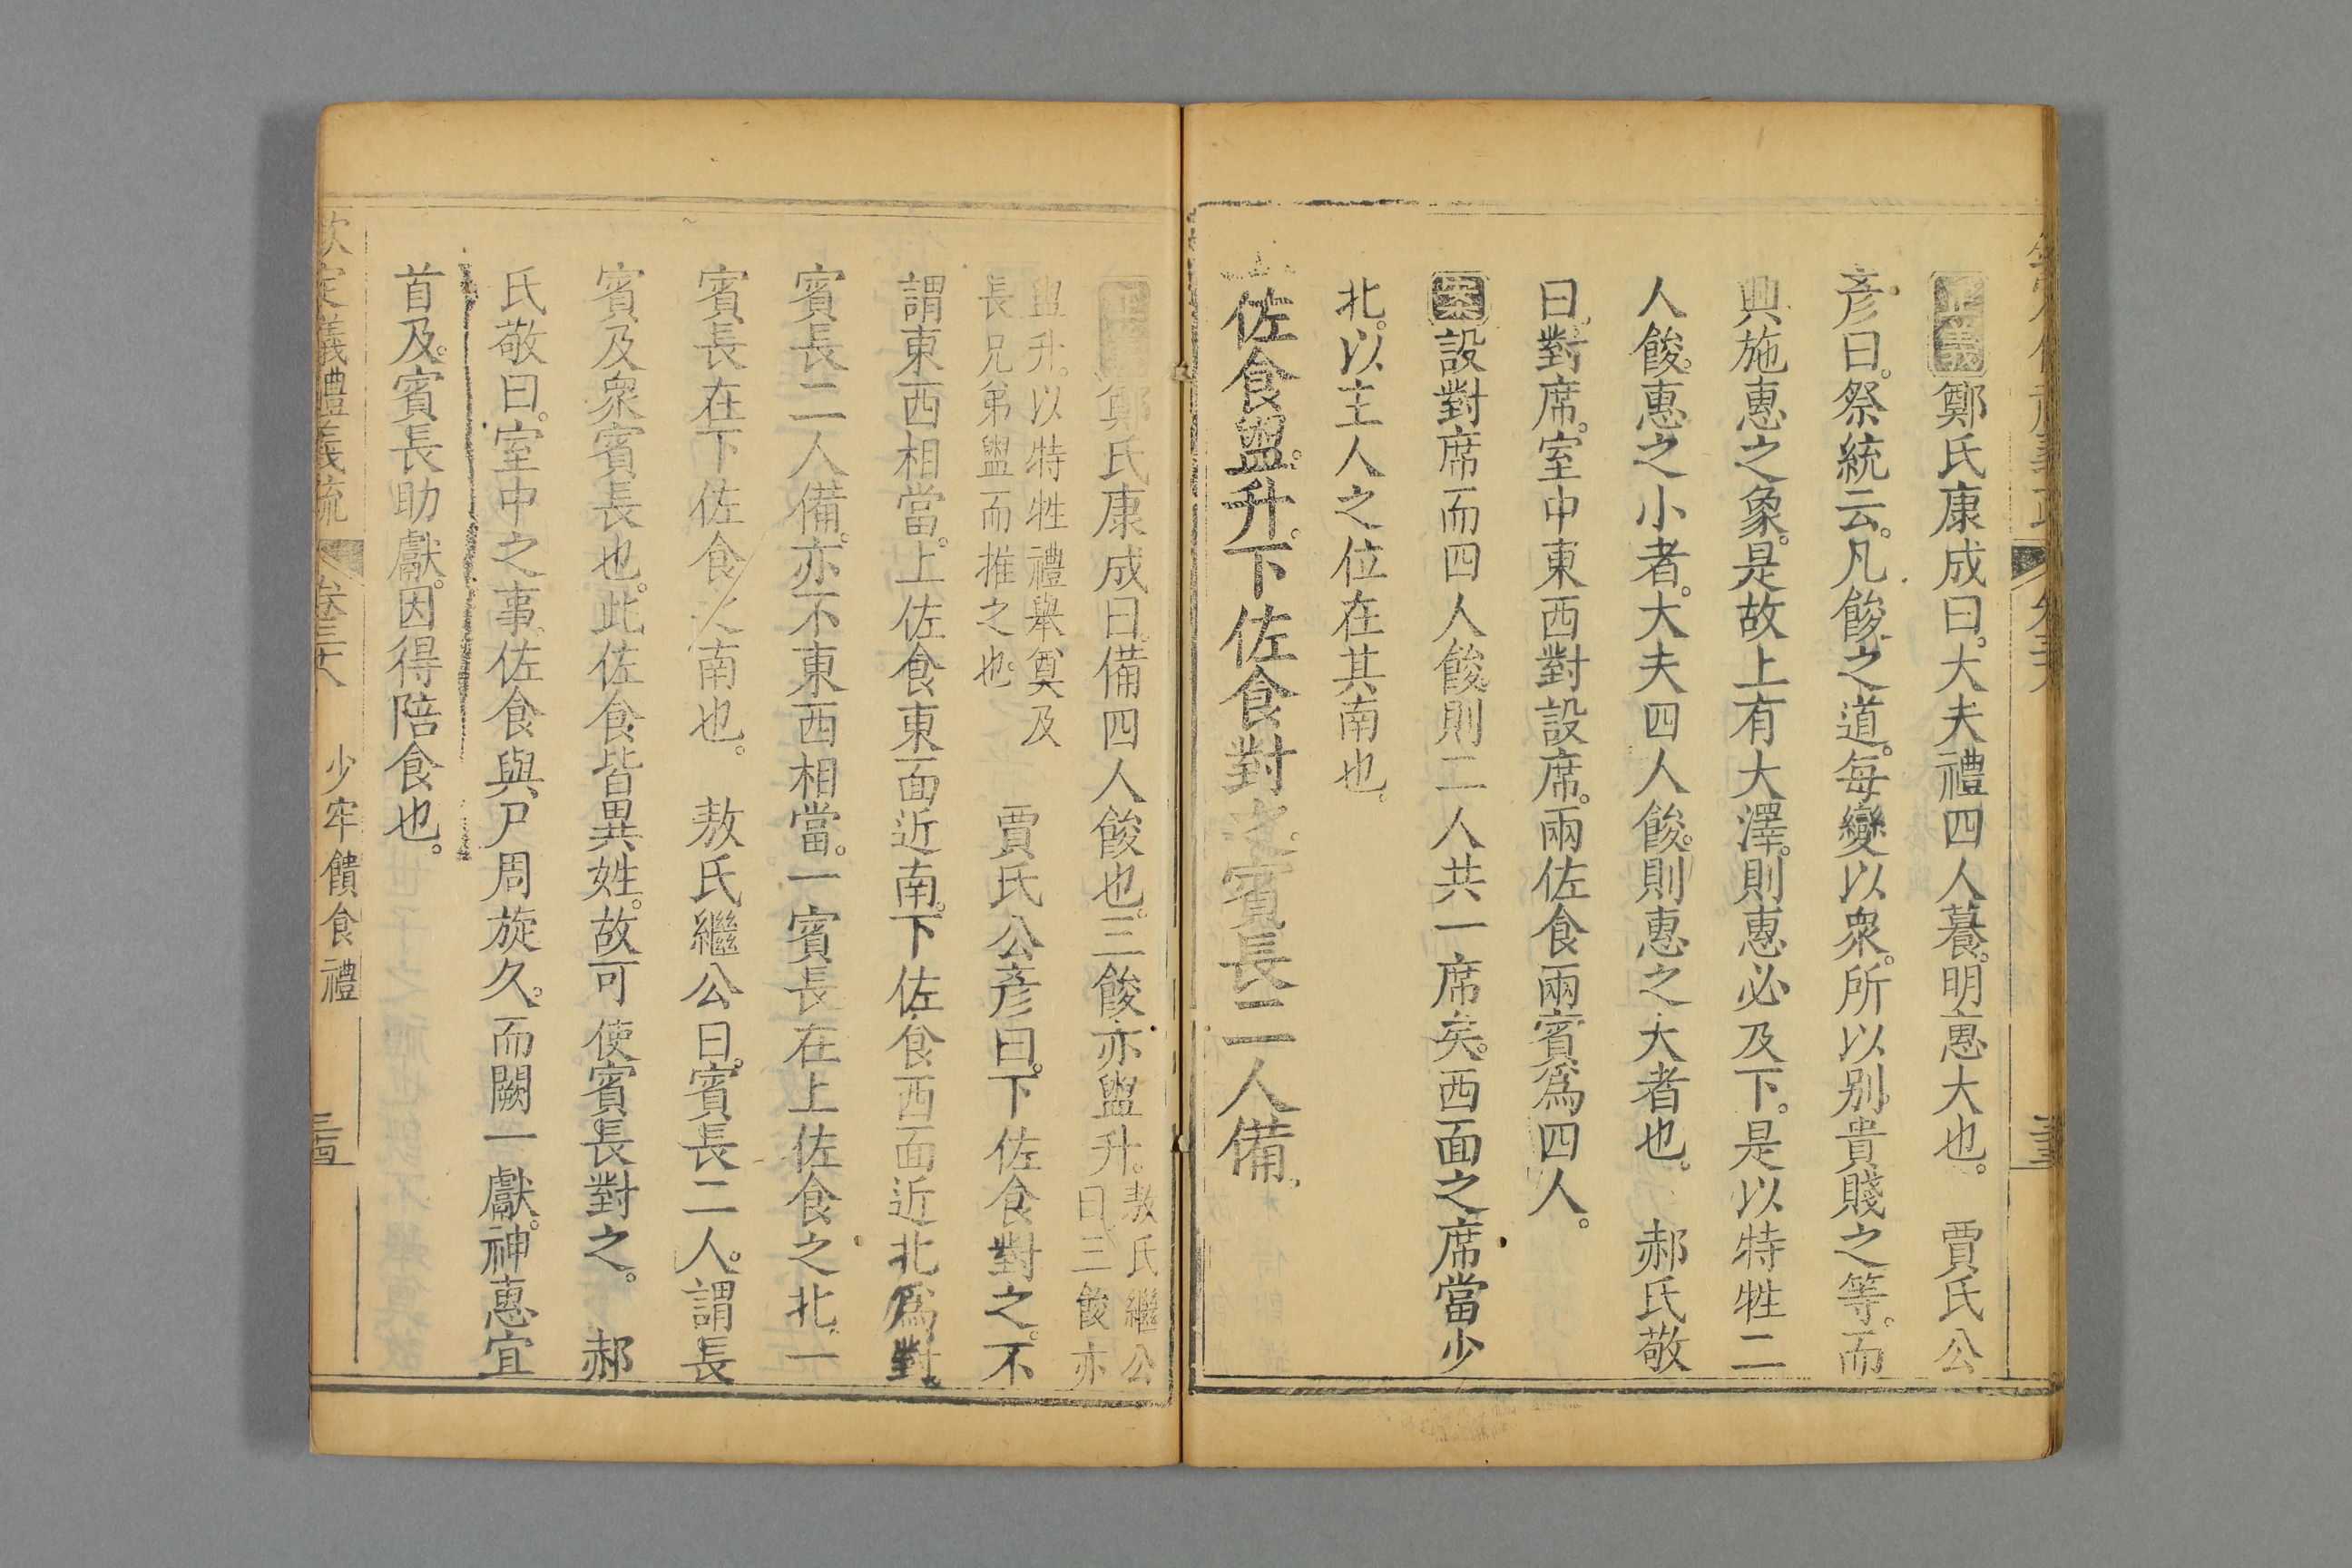 正義鄭氏康成曰。大夫禮四人䬸。明惠大也。　賈氏公
彥曰。祭統云。凡餕之道。每變以衆。所以别貴賤之等。而
興施惠之象。是故上有大澤。則惠必及下。是以特牲二
人餕。惠之小者。大夫四人餕。則惠之大者也。　郝氏敬
曰。對席。室中東西對設席。兩佐食兩賓爲四人。
案設對席而四人餕。則二人共一席矣。西面之席當少
北。以主人之位在其南也。
佐食盥。升。下佐食對之。賓長二人備。
鄭氏康成曰。備四人餕也。三餕亦盥升。敖氏繼公曰。三餕亦
盥升。以特牲禮舉奠及長兄弟盥而推之也。　賈氏公彥曰。下佐食對之。不
謂東西相當。上佐食東面近南。下佐食西面近北爲對。
賓長二人備。亦不東西相當。一賓長在上佐食之北。一
賓長在下佐食之南也。　敖氏繼公曰。賓長二人。謂長
賓及衆賓長也。此佐食皆異姓。故可使賓長對之。　郝
氏敬曰。室中之事。佐食與尸周旋久。而闕一獻。神惠宜
首及。賓長助獻。因得陪食也。
欽定儀禮義疏　卷三十八　少牢饋食禮